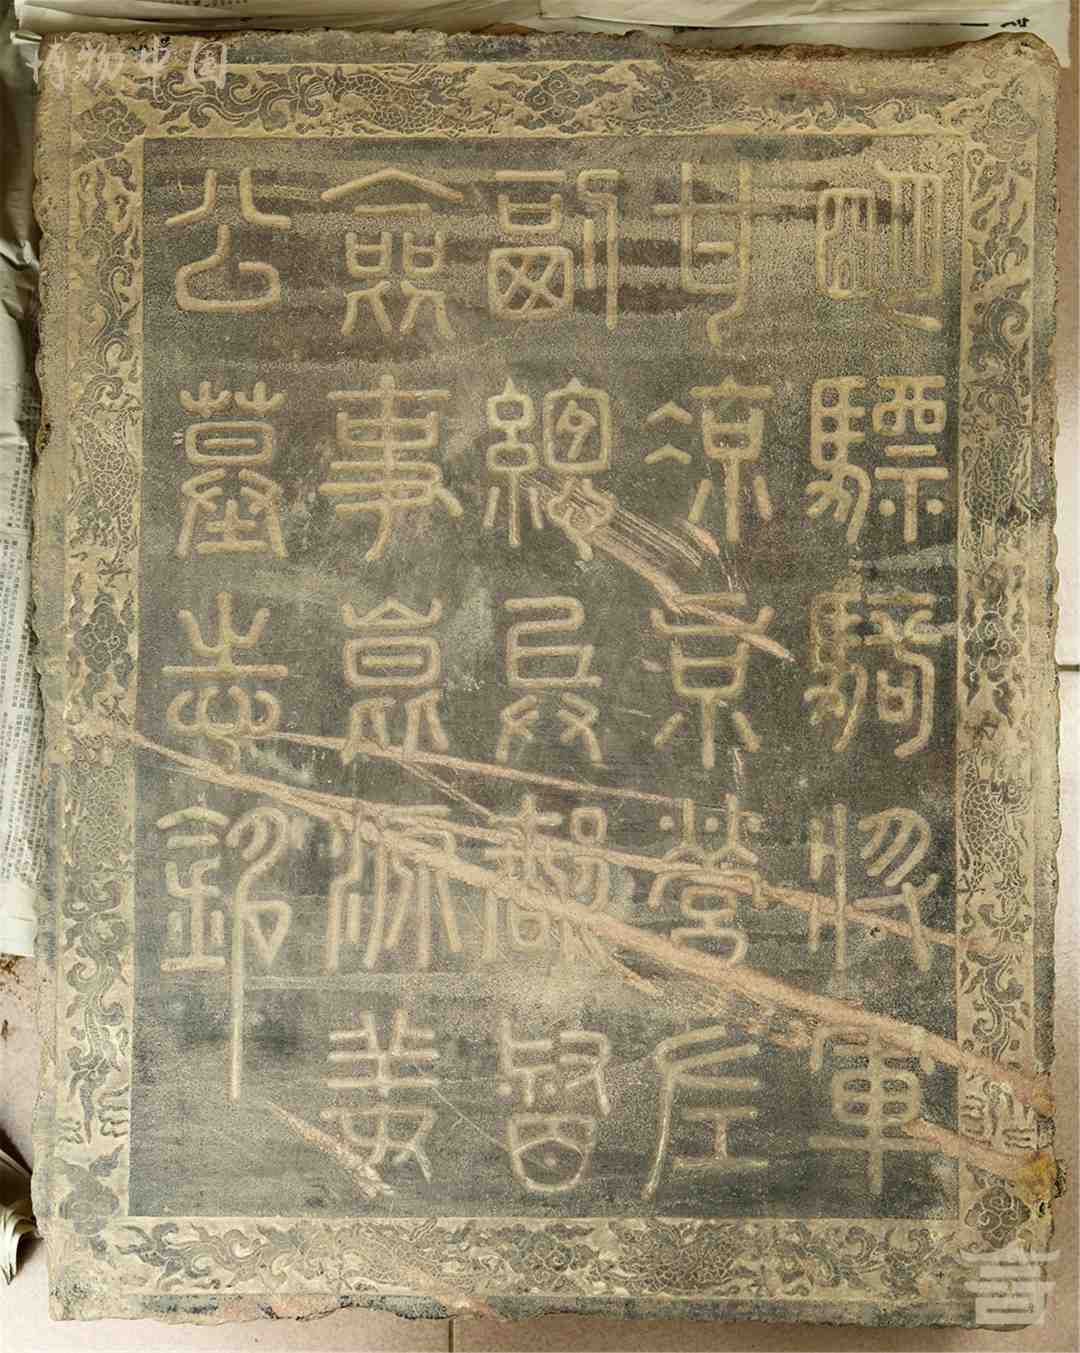 博物中国
明驃騎將軍
甘涼京營左
副總兵都督
僉事崑源姜
公墓志銘